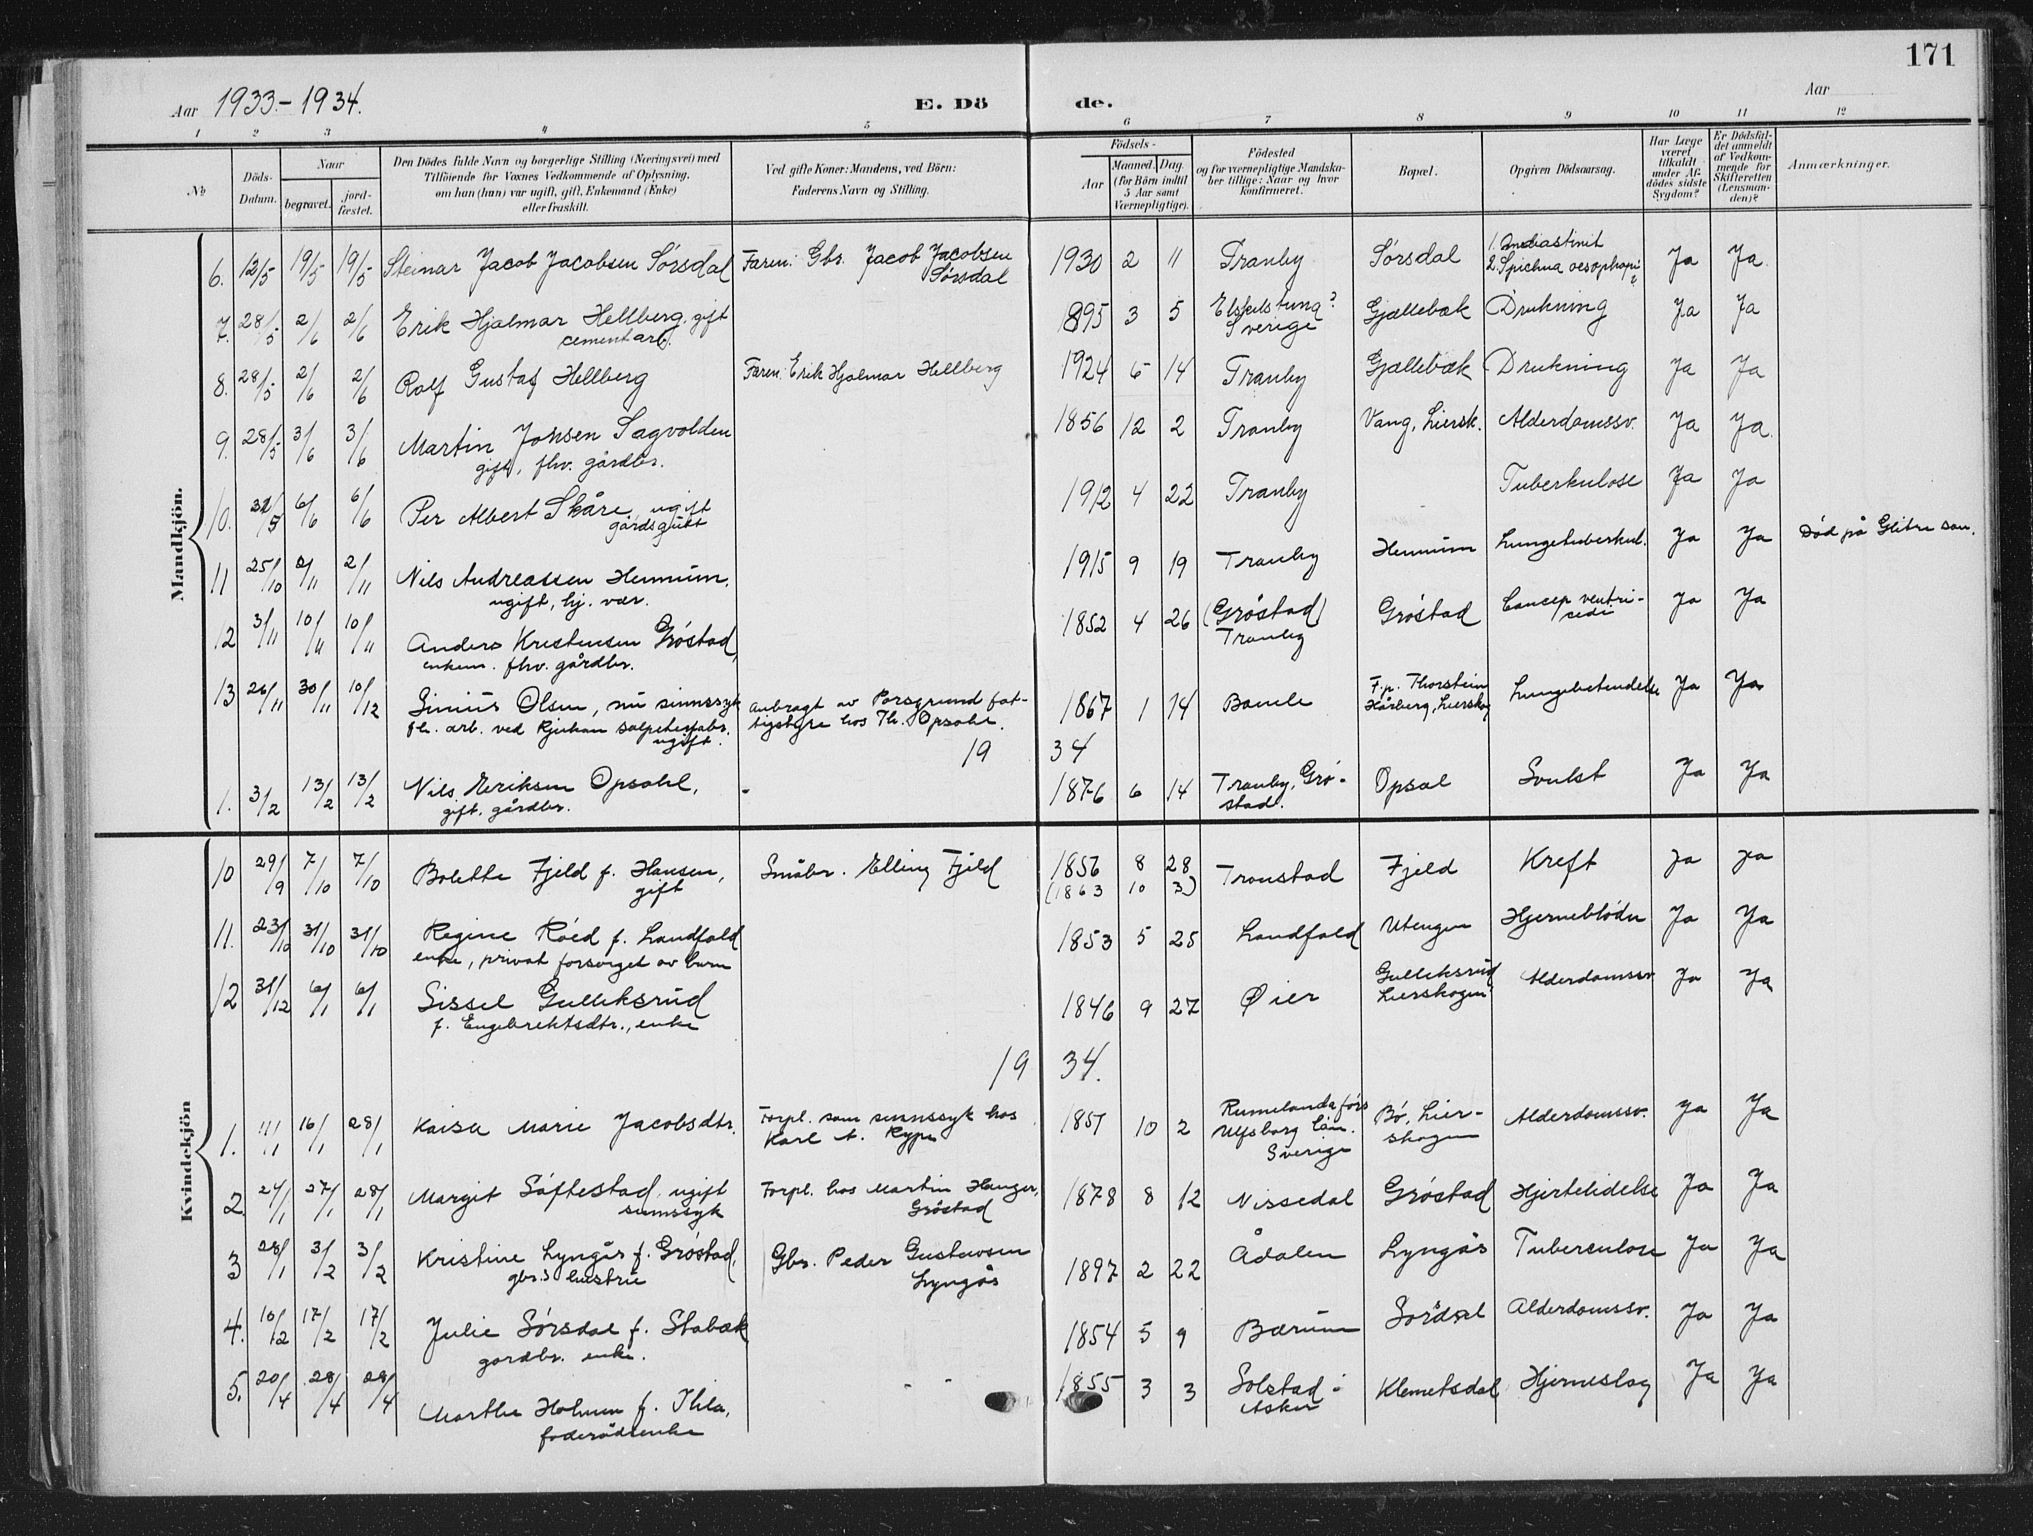 171
Aar 1933.-1934.
E. Dö de.
Aar
1 2 3 4 5 6 7 8 9 10 11 12
No
Döds-Datum.
Naar
begravet.
jord-fæstet.
Den Dödes fulde Navn og borgerlige Stilling (Næringsvei) med
Tilföiende for Voxnes Vedkommende af Oplysning,
om han (hun) var ugift, gift, Enkemand (Enke)
eller fraskilt.
Ved gifte Koner: Mandens, ved Börn:
Faderens Navn og Stilling.
Födsels-
Aar
Maaned. Dag.
(for Börn indtil
5 Aar samt
Værnepligtige).
Födested
og for værnepligtige Mandska-
ber tillige: Naar og hvor
konfirmeret.
Bopæl.
Opgiven Dödsaarsag.
Har Læge
været
tilkaldt
under Af-
dödes sidste
Sygdom?
Er Dödsfal-
det anmeldt
af Vedkom-
mende for
Skifteretten
(Lensman-
den)?
Anmærkninger.
Mandkjön.
6. 12/5 19/5 19/5 Steinar Jacob Jacobsen Sørsdal Faren: Gbr. Jacob Jacobsen Sørsdal 1930 2 11 Tranby Sørsdal 1. 2. Ja Ja.
7. 28/5 2/6 2/6 Erik Hjalmar Hellberg, gift cementarb. 895 3 5 Sverige Gjællebæk Drukning Ja Ja
8. 28/5 2/6 2/6 Rolf Gustaf Hellberg Faren: Erik Hjalmar Hellberg 1924 6 14 Tranby Gjællebæk Drukning Ja Ja
9. 28/5 3/6 3/6 Martin Johsen Sagvolden gift, fhv. gårdbr. 1856 12 2 Tranby Vang, Liersk. Alderdomssv. Ja Ja.
10. 31/5 6/6 6/6 Per Albert Skåre, ugift gårdsgutt 1912 4 22 Tranby Tuberkulose Ja Ja
11 25/10 2/11 2/11 Nils Andreassen Hennum, ugift, hj. vær. 1915 9 19 Tranby Hennum Lungetuberkul. Ja Ja Død på Glitre san.
12 3/11 10/11 10/11 Anders Kristensen Grøstad, enkem. fhv. gårdbr. 1852 4 26 (Grøstad) Tranby Grøstad Cancer ventri- Ja Ja
13 26/11 30/11 10/12 Olsen, nu sinnssyk fh. arb. ved Rjukan salpeterfabr. ugift. anbragt av Porsgrund fat-tigstyre hos Th. Opsahl. 1867 1 14 Bamle F.p. Thorstein Hårberg, Lierskog Lungebetendelse Ja Ja
1934
1. 3/2 13/2 13/2 Nils Eriksen Opsahl, gift, gårdbr. - 1876 6 14 Tranby, Grø-stad. Opsal Svulst Ja Ja
Kvindekjön
10 29/9 7/10 7/10 Bolette Fjeld f. Hansen, gift Småbr. Elling Fjeld 1856 8 28 (1863 10 3) Tronstad Fjeld Kreft Ja Ja
11. 23/10 31/10 31/10 Regine Røed f. Landfald enke, privat forsørget av barn 1853 5 25 Landfald Utengen Hjerneblødn Ja Ja
12 31/12 6/1 6/1 Sissel Gulliksrud f. Engebrektsdtr., enke 1846 9 27 Øier Gulliksrud Lierskogen Alderdomssv Ja Ja
1934.
1. 11/1 16/1 28/1 Kaisa Marie Jacobsdtr. Forpl. som sinnssyk hos Karl A. Rype 1851 10 2 Sverige Bø, Lier-skogen Alderdomssv. Ja Ja
2. 24/1 27/1 28/1 Margit Søftestad, ugift sinnssyk Forpl. hos Martin Hunger, Grøstad 1878 8 12 Nissedal Grøstad Hjertelidelse Ja Ja
3 28/1 3/2 3/2 Kristine Lyngås f. Grøstad, gbr.s hustru Gbr. Peder Gustavsen Lyngås 1897 2 22 Ådalen Lyngås Tuberculose Ja Ja
4. 10/2 17/2 17/2 Julie Sørsdal f. Stabæk gardbr. enke. 1854 5 9 Bærum Sørdal Alderdomssv. Ja Ja
5. 20/4 28/4 28/4 Marthe Holmen f. Ihla, føderådsenke - - 1855 3 3 Solstad i Asker Klemetsdal Hjerneslag Ja Ja